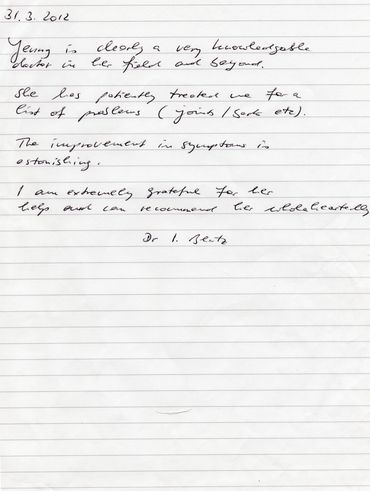 31.3.2012
Yening is clearly a very knowledgable
doctor in her field and beyond.
She has patiently treated me for a
list of problems (joints / back etc).
The improvement in symptoms is
astonishing.
I am extremely grateful for her
help and can recommend her wholeheartedly
Dr I.